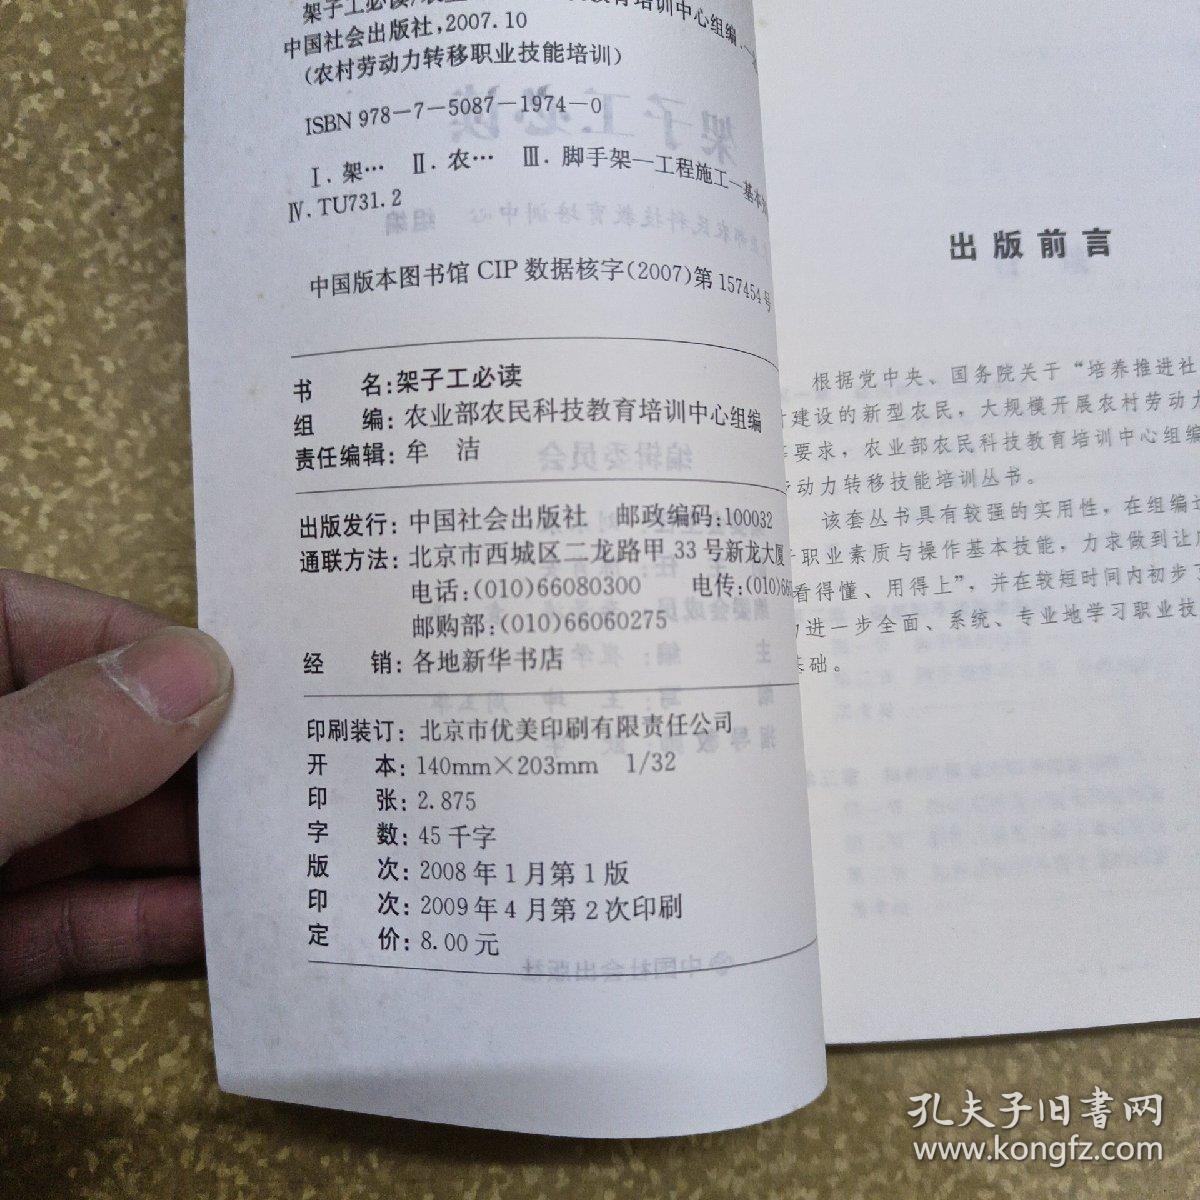 架子工必读/农业
教育培训中心组编.—北
中国社会出版社,2007.10
(农村劳动力转移职业技能培训)
ISBN 978-7-5087-1974-0
Ⅰ.架… Ⅱ.农… Ⅲ.脚手架—工程施工—基本
Ⅳ.TU731.2
中国版本图书馆 CIP 数据核字(2007)第 157454号
书 名:架子工必读
组 编:农业部农民科技教育培训中心组编
责任编辑:牟 洁
出版发行:中国社会出版社 邮政编码:100032
通联方法:北京市西城区二龙路甲 33 号新龙大厦
电话:(010)66080300 电传:(010)66
邮购部:(010)66060275
经 销:各地新华书店
印刷装订:北京市优美印刷有限责任公司
开 本:140mm×203mm 1/32
印 张:2.875
字 数:45 千字
版 次:2008 年 1 月第 1 版
印 次:2009 年 4 月第 2 次印刷
定 价:8.00 元
出版前言
根据党中央、国务院关于“培养推进社
建设的新型农民,大规模开展农村劳动力
要求,农业部农民科技教育培训中心组编
动力转移技能培训丛书。
该套丛书具有较强的实用性,在组编过
职业素质与操作基本技能,力求做到让
看得懂、用得上”,并在较短时间内初步
进一步全面、系统、专业地学习职业技
基础。
孔夫子旧书网
www.kongfz.com